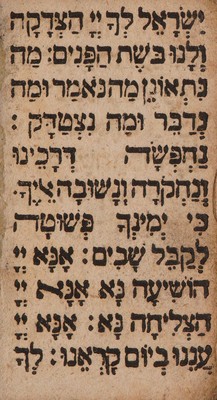 יִשְׂרָאֵל לְךָ יְיָ הַצְּדָקָה
וְלָנוּ בֹּשֶׁת הַפָּנִים: מַה
נִּתְאוֹנֵן מַה נֹּאמַר וּמַה
נְּדַבֵּר וּמַה נִּצְטַדָּק:
נַחְפְּשָׂה דְּרָכֵינוּ
וְנַחְקֹרָה וְנָשׁוּבָה אֵלֶיךָ.
כִּי יְמִינְךָ פְּשׁוּטָה
לְקַבֵּל שָׁבִים: אָנָּא יְיָ
הוֹשִׁיעָה נָּא אָנָּא יְיָ
הַצְלִיחָה נָּא: אָנָּא יְיָ
עֲנֵנוּ בְיוֹם קָרְאֵנוּ: לְךָ